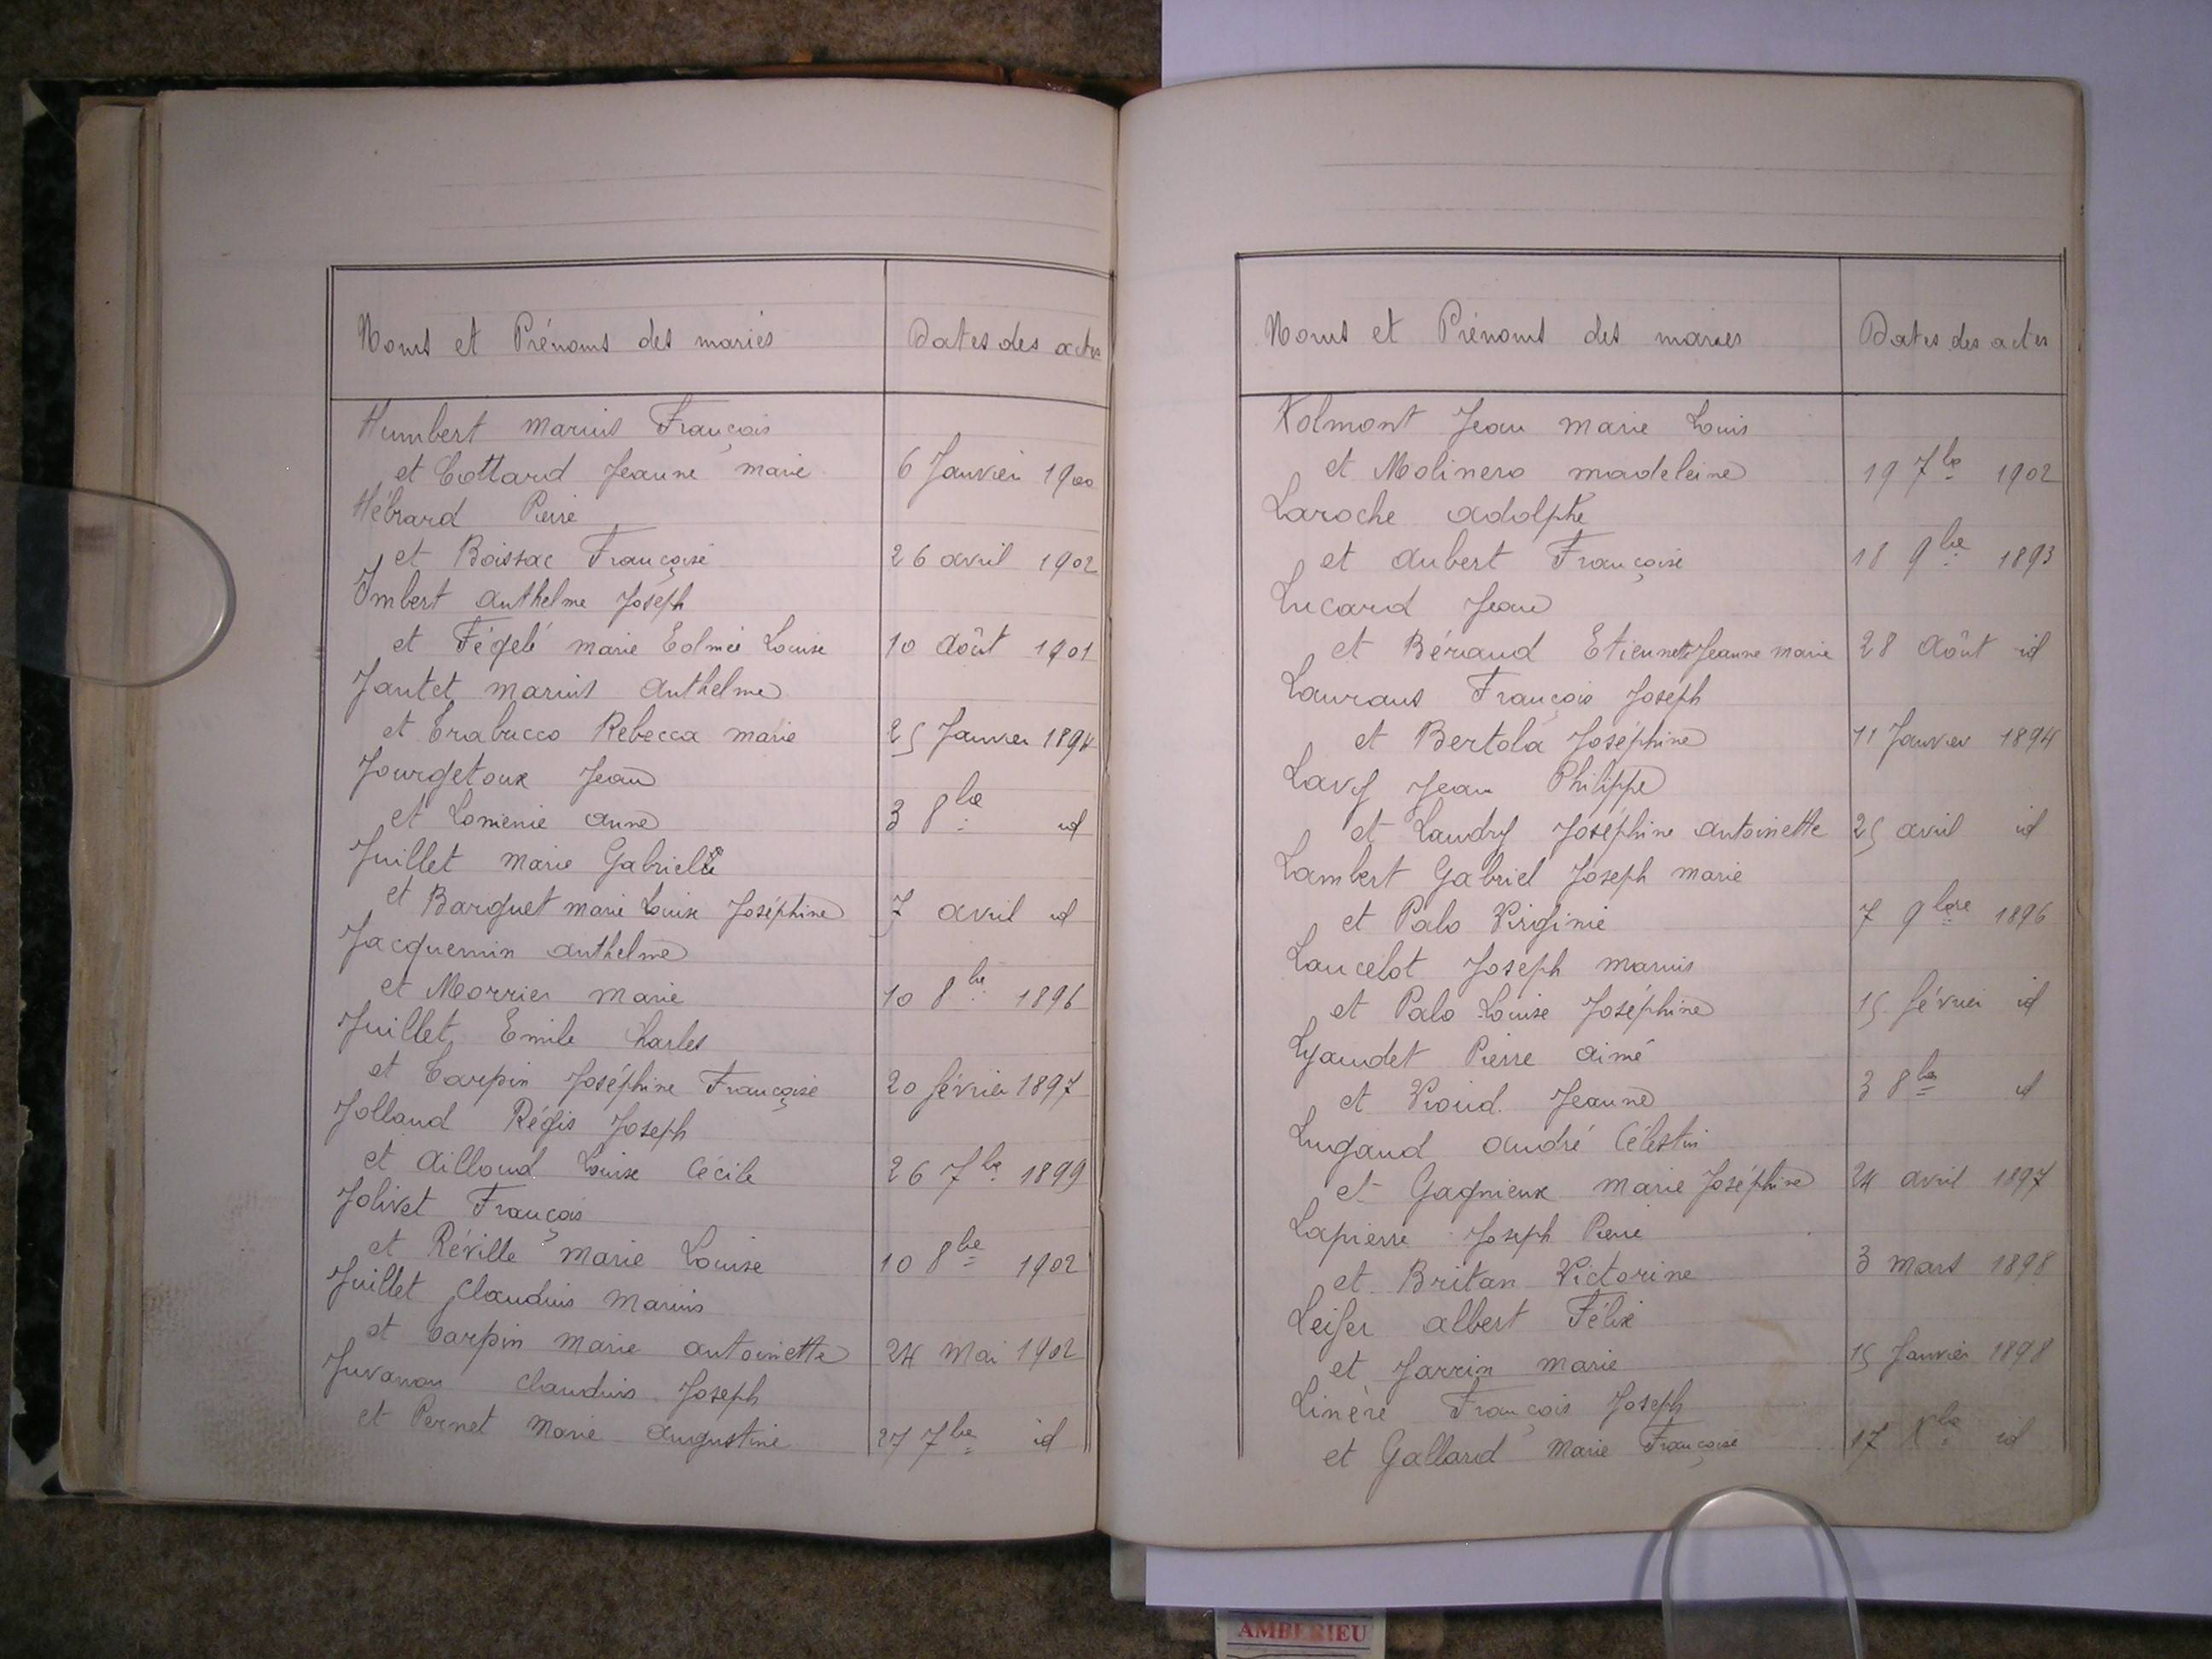 Noms et Prénoms des mariés Dates des actes
Humbert Marius François
et Cottard Jeanne Marie 6 Janvier 1900
Hébrard Pierre
et Boissac Françoise 26 avril 1902
Imbert Anthelme Joseph
et Fégelé Marie Edmée Louise 10 Août 1901
Jantet Marius Anthelme
et Trabucco Rebecca Marie 25 Janvier 1894
Jourgetoux Jean
et Lomenie Anne 3 8bre id
Juillet Marie Gabriel
et Barquet Marie Louise Joséphine 7 avril id
Jacquemin Anthelme
et Morrier Marie 10 8bre 1896
Juillet Emile Charles
et Carpin Joséphine Françoise 20 février 1897
Jolland Régis Joseph
et Ailloud Louise Cécile 26 7bre 1899
Jolivet François
et Réville Marie Louise 10 8bre 1902
Juillet Claudius Marius
et Carpin Marie Antoinette 24 Mai 1902
Juvanon Claudius Joseph
et Pernet Marie Augustine 27 7bre id
Noms et Prénoms des mariés Dates des actes
Kolmont Jean Marie Louis
et Molinero Madeleine 19 7bre 1902
Laroche Adolphe
et Aubert Françoise 18 9bre 1893
Lucard Jean
et Béraud Etiennette Jeanne Marie 28 Août id
Laurans François Joseph
et Bertola Joséphine 11 Janvier 1894
Lavy Jean Philippe
et Landry Joséphine Antoinette 25 avril id
Lambert Gabriel Joseph Marie
et Palo Virginie 7 9bre 1896
Lancelot Joseph Marius
et Palo Louise Joséphine 15 février id
Lyaudet Pierre Aimé
et Vioud Jeanne 3 8bre id
Lugand André Célestin
et Gagnieux Marie Joséphine 24 avril 1897
Lapierre Joseph Pierre
et Britan Victorine 3 mars 1898
Leifer Albert Félix
et Jarrin Marie 15 Janvier 1898
Linère François Joseph
et Gallard Marie Françoise 17 Xbre id
AMBERIEU